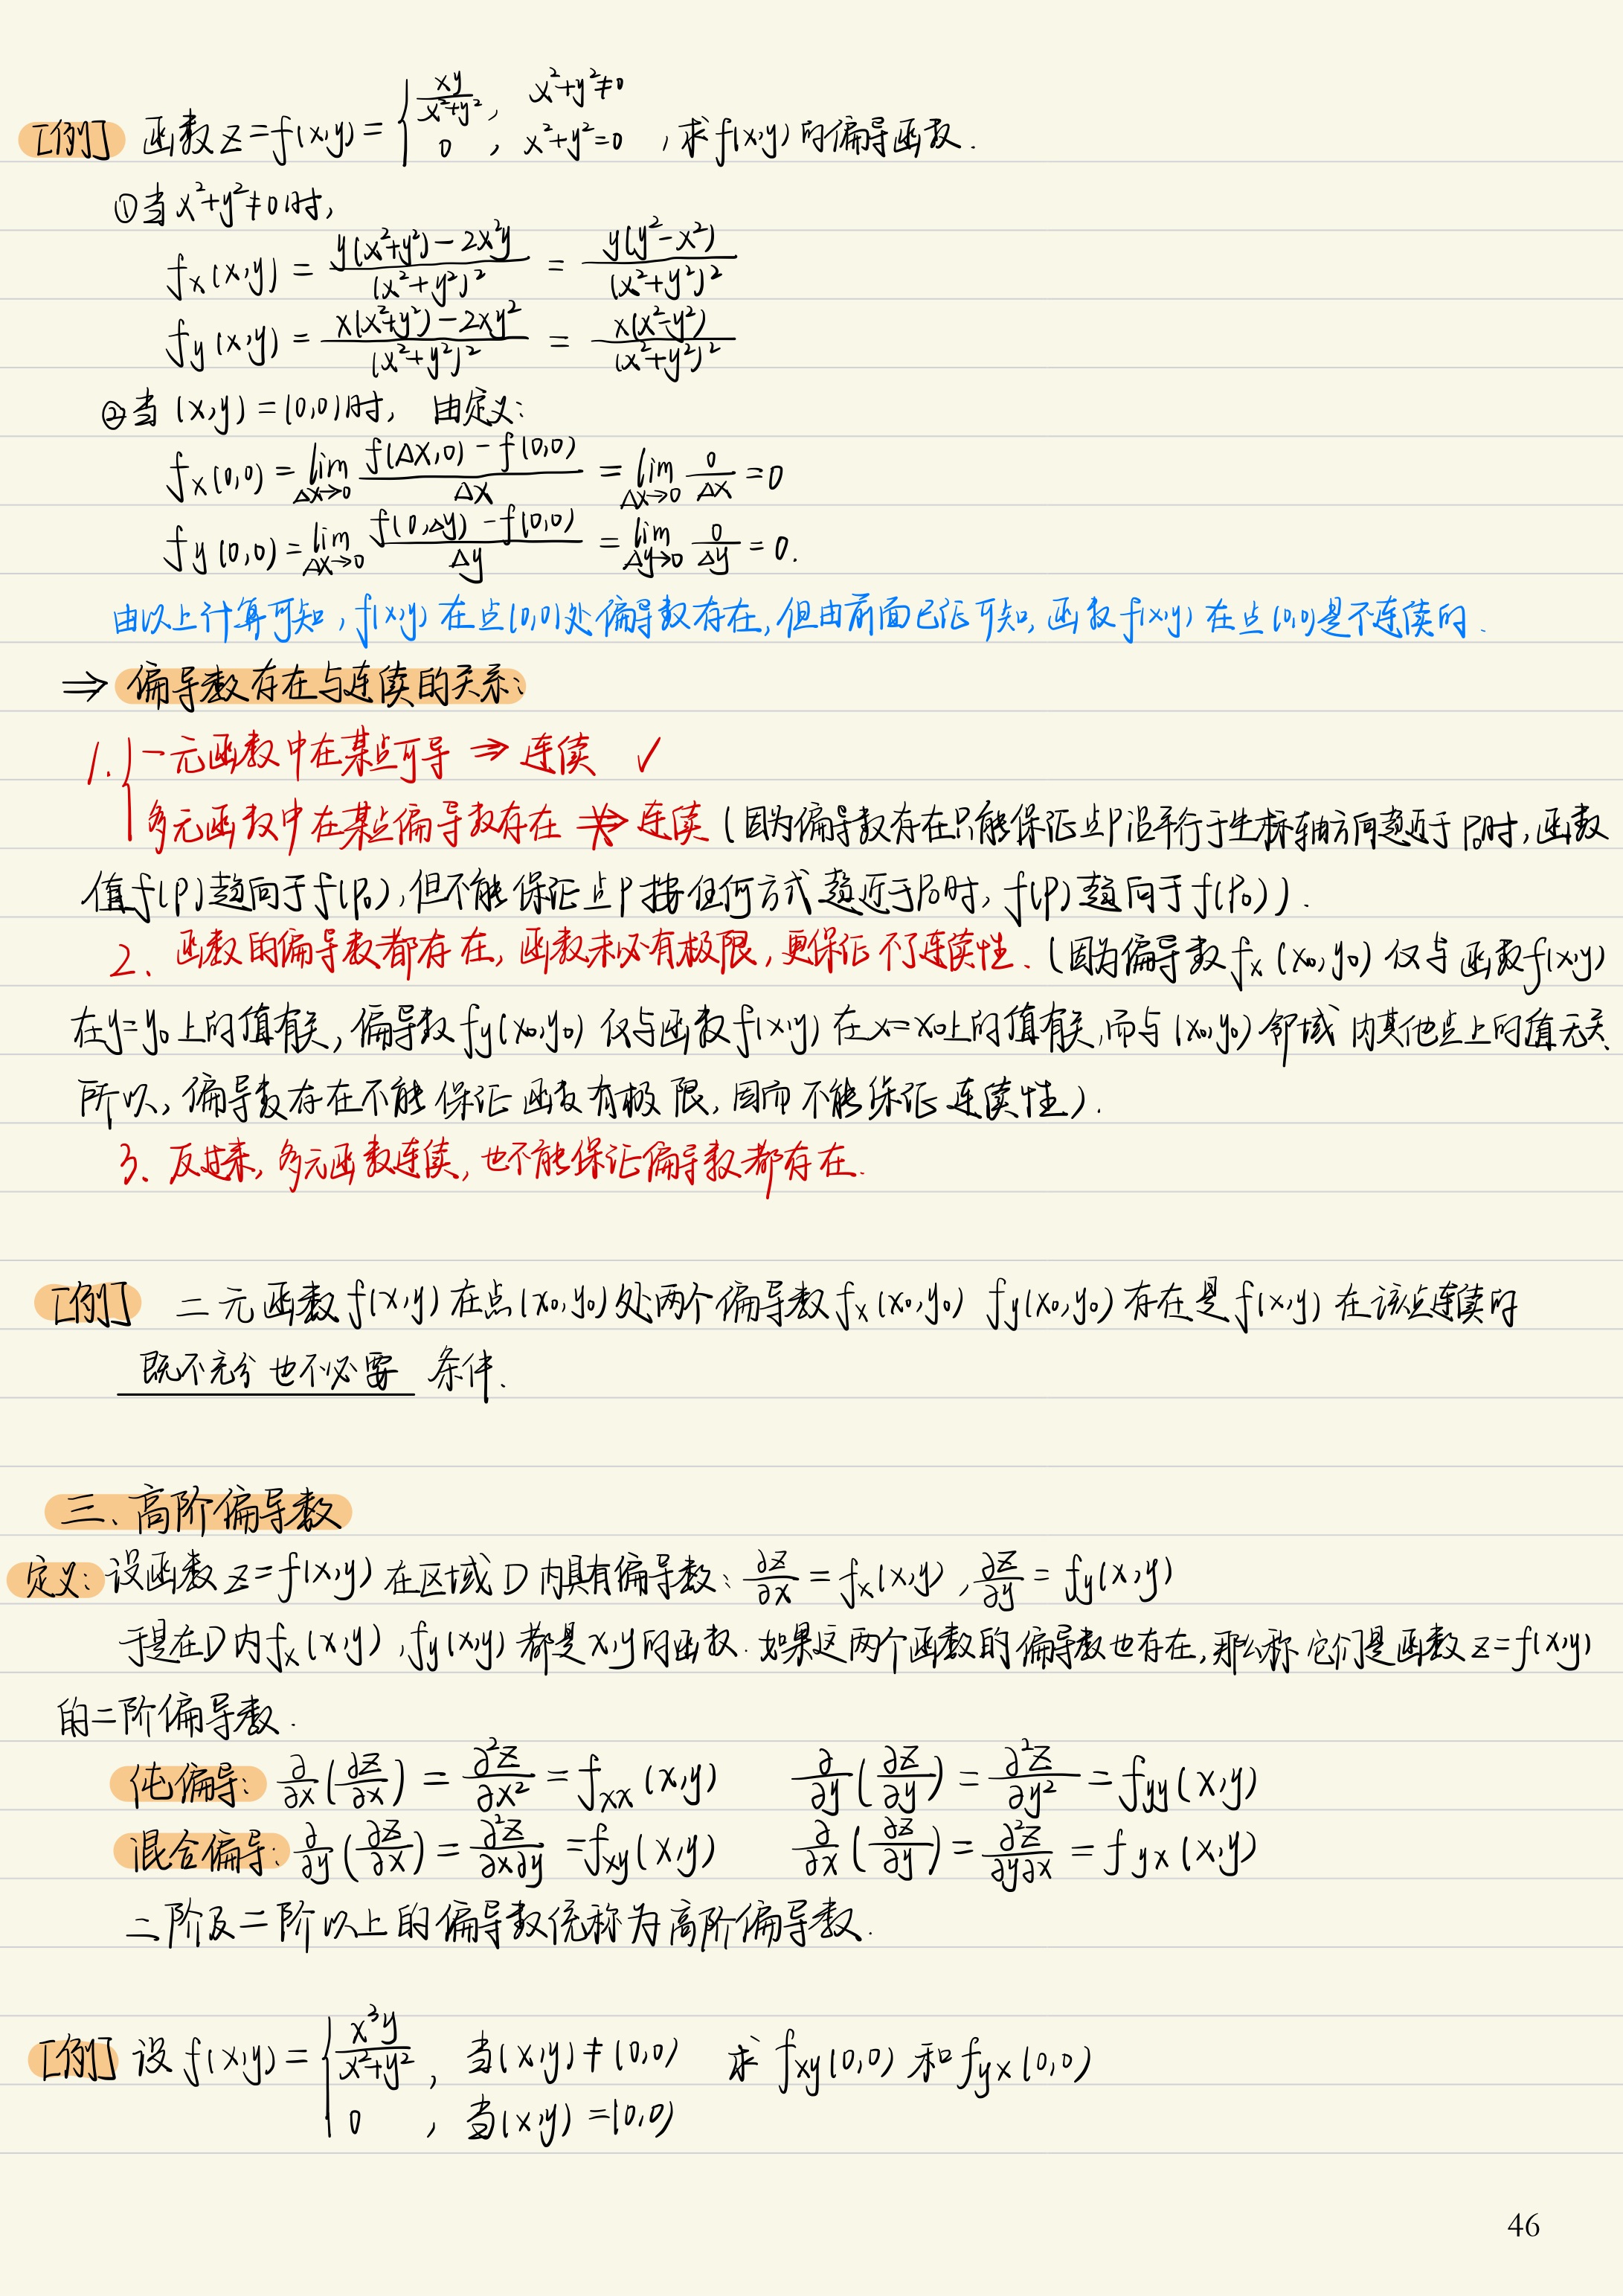 [例] 函数 z=f(x,y)={ xy/(x²+y²), x²+y²≠0 ; 0, x²+y²=0 , 求f(x,y)的偏导函数.
①当x²+y²≠0时,
f_x(x,y) = (y(x²+y²)-2x²y)/(x²+y²)² = y(y²-x²)/(x²+y²)²
f_y(x,y) = (x(x²+y²)-2xy²)/(x²+y²)² = x(x²-y²)/(x²+y²)²
②当(x,y)=(0,0)时, 由定义:
f_x(0,0) = lim_{Δx→0} (f(Δx,0)-f(0,0))/Δx = lim_{Δx→0} 0/Δx = 0
f_y(0,0) = lim_{Δx→0} (f(0,Δy)-f(0,0))/Δy = lim_{Δy→0} 0/Δy = 0.
由以上计算可知, f(x,y)在点(0,0)处偏导数存在, 但由前面已证可知, 函数f(x,y)在点(0,0)是不连续的.
⇒ 偏导数存在与连续的关系:
1. { 一元函数中在某点可导 ⇒ 连续 ✓
多元函数中在某点偏导数存在 ⇏ 连续 (因为偏导数存在只能保证点P沿平行于坐标轴方向趋近于P₀时, 函数
值f(P)趋向于f(P₀), 但不能保证点P按任何方式趋近于P₀时, f(P)趋向于f(P₀)).
2、函数的偏导数都存在, 函数未必有极限, 更保证不了连续性. (因为偏导数f_x(x₀,y₀) 仅与函数f(x,y)
在y=y₀上的值有关, 偏导数f_y(x₀,y₀) 仅与函数f(x,y)在x=x₀上的值有关, 而与(x₀,y₀)邻域内其他点上的值无关.
所以, 偏导数存在不能保证函数有极限, 因而不能保证连续性).
3、反过来, 多元函数连续, 也不能保证偏导数都存在.
[例] 二元函数f(x,y)在点(x₀,y₀)处两个偏导数f_x(x₀,y₀) f_y(x₀,y₀)存在是f(x,y)在该点连续的
既不充分也不必要 条件.
三、高阶偏导数
定义: 设函数z=f(x,y)在区域D内具有偏导数: ∂z/∂x = f_x(x,y), ∂z/∂y = f_y(x,y)
于是在D内f_x(x,y), f_y(x,y)都是x,y的函数. 如果这两个函数的偏导数也存在, 那么称它们是函数z=f(x,y)
的二阶偏导数.
纯偏导: ∂/∂x(∂z/∂x) = ∂²z/∂x² = f_xx(x,y) ∂/∂y(∂z/∂y) = ∂²z/∂y² = f_yy(x,y)
混合偏导: ∂/∂y(∂z/∂x) = ∂²z/∂x∂y = f_xy(x,y) ∂/∂x(∂z/∂y) = ∂²z/∂y∂x = f_yx(x,y)
二阶及二阶以上的偏导数统称为高阶偏导数.
[例] 设f(x,y)={ x³y/(x²+y²), 当(x,y)≠(0,0) 求f_xy(0,0)和f_yx(0,0)
0, 当(x,y)=(0,0)
46